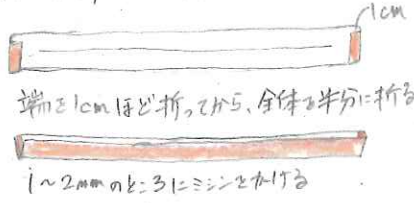 1cm
端を1cmほど折ってから、全体を半分に折る
1~2mmのところにミシンをかける